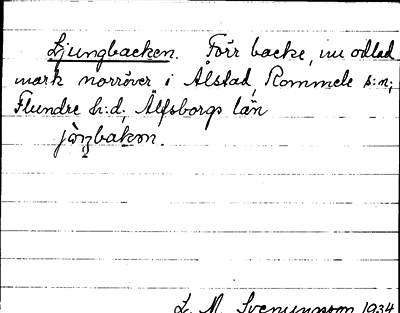 Ljungbacken. Förr backe, nu odlad
mark norröver i Ålstad, Rommele s:n,
Flundre h:d, Älfsborgs län
jòŋbakən.
L. M. Svenungsson 1934